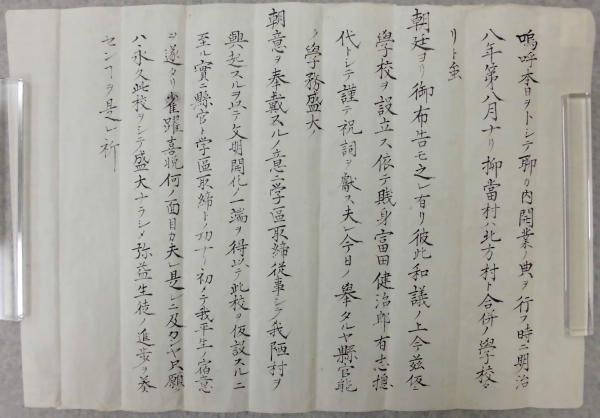 嗚呼本日ヲトシテ聊カ内開業ノ典ヲ行フ時ニ明治
八年第八月ナリ抑當村ハ北方村ト合併ノ學校ナ
リト虽
朝廷ヨリ御布告モ之レ有リ彼此和議ノ上今茲仮ニ
學校ヲ設立ス依テ賎身富田健治郎有志穏
代トシテ謹テ祝詞ヲ獻ス夫レ今日ノ舉タルヤ縣官能
ク學務盛大
朝意ヲ奉戴スルノ意ニ学區取締従事シテ我陋村ヲ
興起スルヲ以テ文明開化ノ一端ヲ得以テ此校ヲ仮設スルニ
至ル實ニ縣官ト学區取締トノ功ナリ初メテ我平生ノ宿意
ヲ遂タリ雀躍喜悦何ノ面目カ夫レ是レニ及カンヤ只願
ハ永久此校ヲシテ盛大ナラシメ弥益生徒ノ進歩ヲ奏
センヿヲ是レ祈